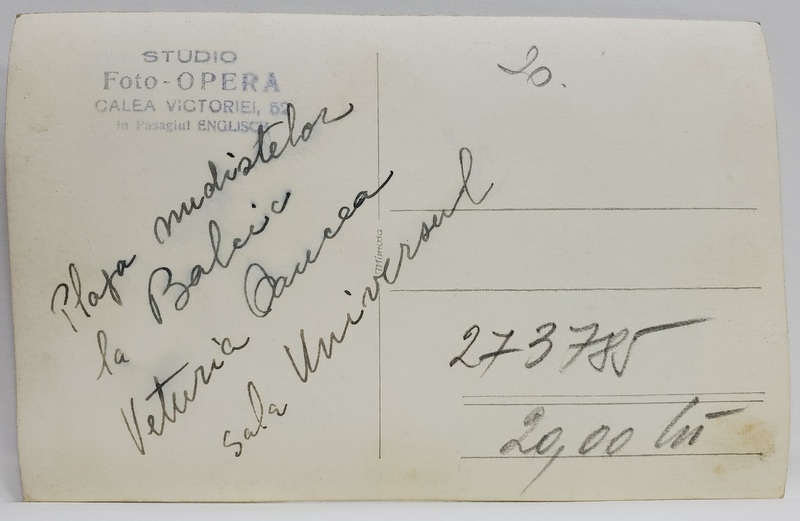 STUDIO
Foto-OPERA
CALEA VICTORIEI, 52
in Pasagiul ENGLISCH
Plaja nudistelor
la Balcic
Veturia Oancea
sala Universul
Mimosa
20.
273785
20,00 lei